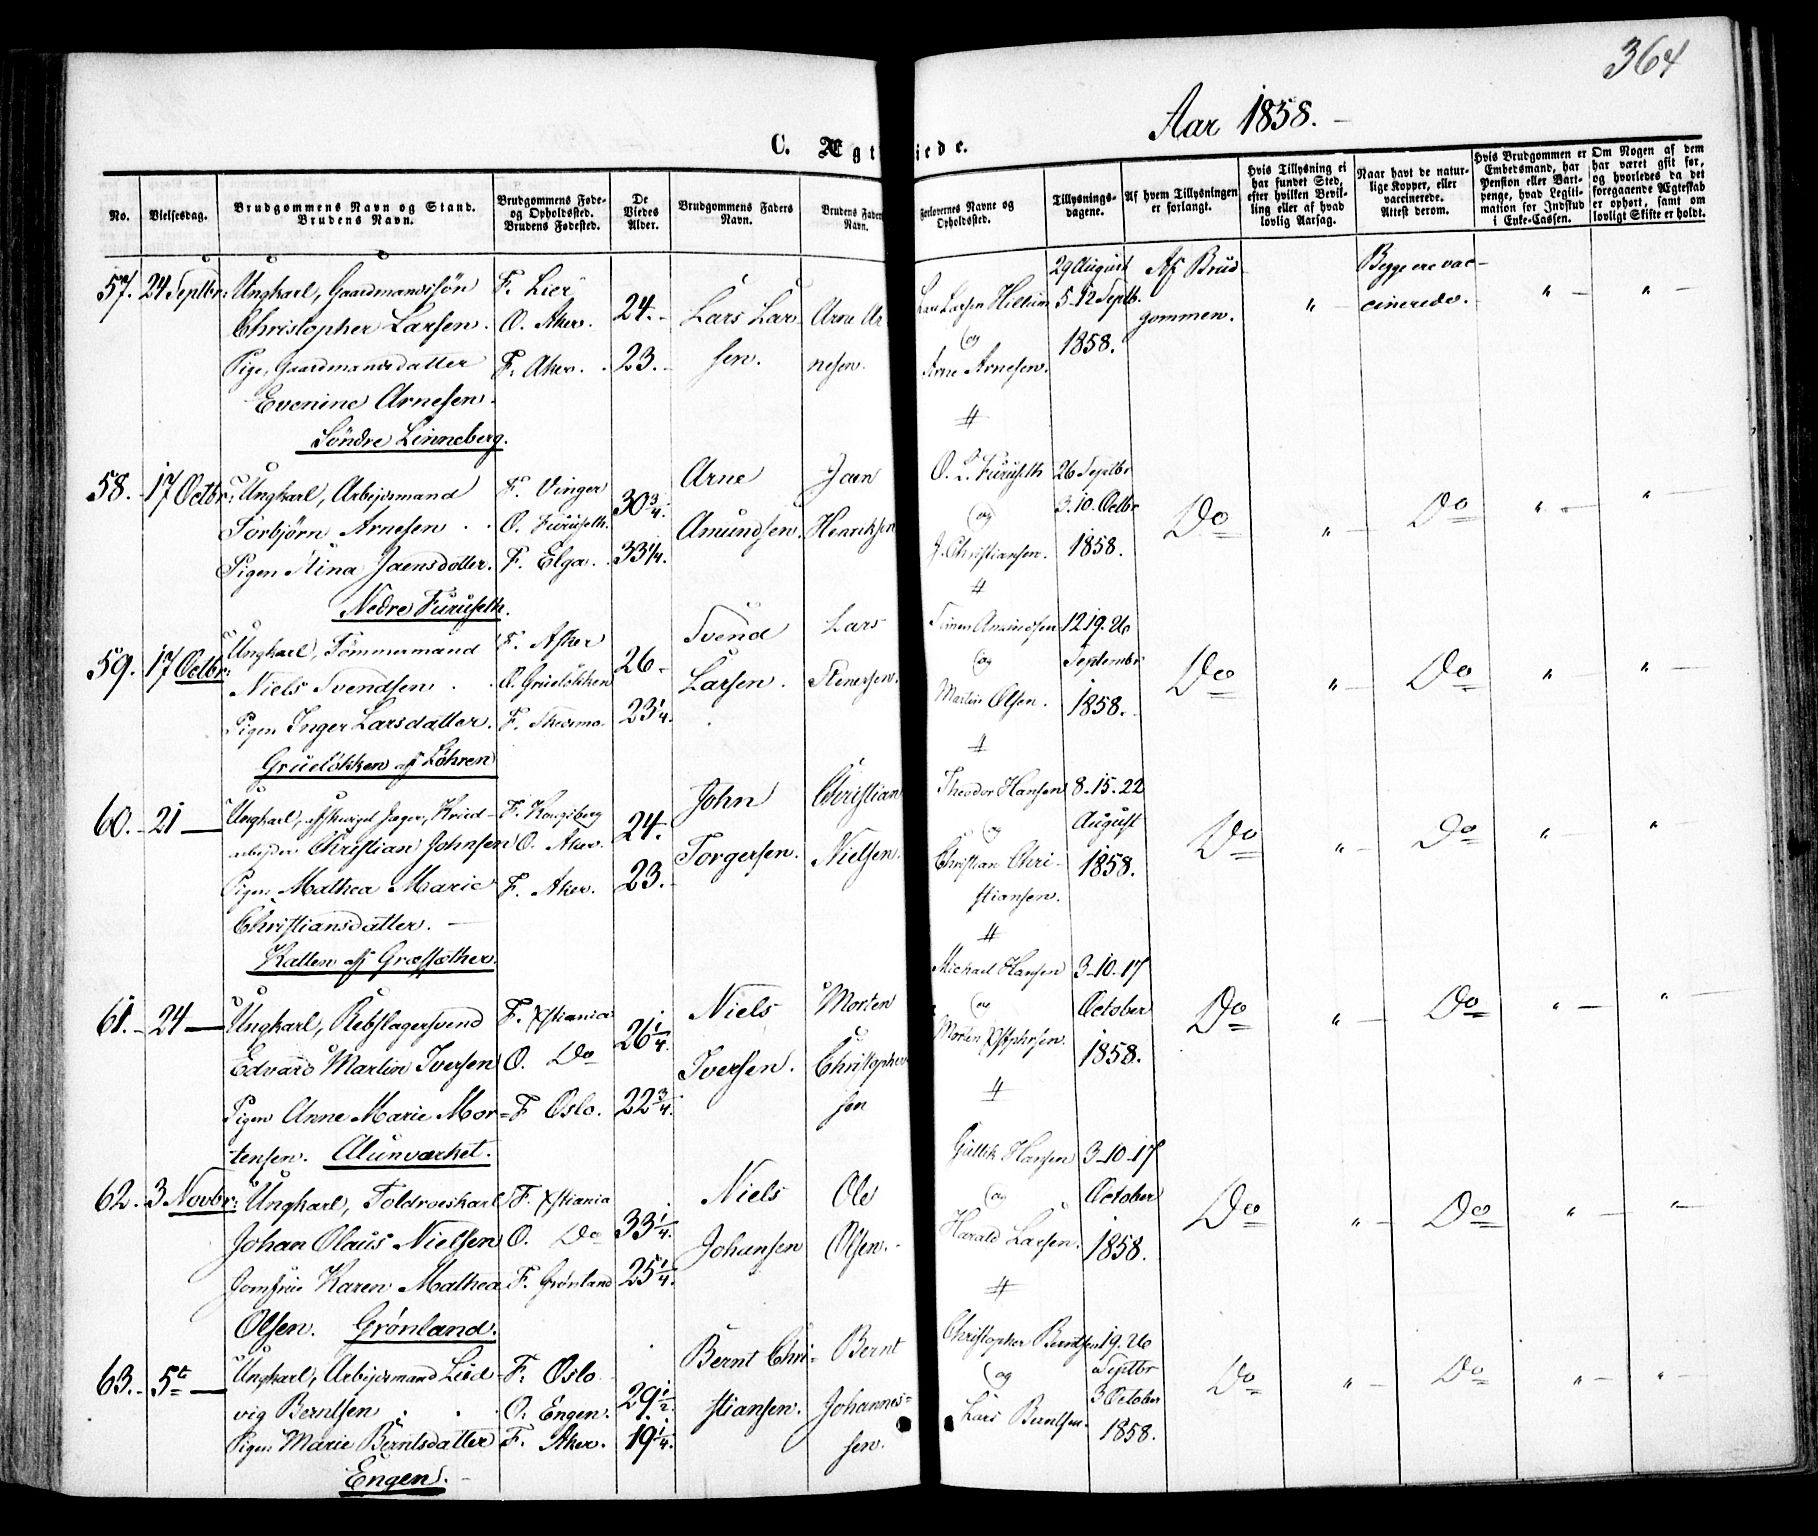 364
Aar 1858.
C. Ægteviede.
No.
Vielsesdag.
Brudgommens Navn og Stand.
Brudens Navn.
Brudgommens Føde-
og Opholdssted.
Brudens Fødested.
De
Viedes
Alder.
Brudgommens Faders
Navn.
Brudens Faders
Navn.
Forlovernes Navne og
Opholdssted.
Tillysnings-
dagene.
Af hvem Tillysningen
er forlangt.
Hvis Tillysning ei
har fundet Sted,
efter hvilken Bevil-
ling eller af hvad
lovlig Aarsag.
Naar havt de natur-
lige Kopper, eller
vaccinerede.
Attest derom.
Hvis Brudgommen er
Embedsmand, har
Pension eller Vart-
penge, hvad Legiti-
mation for Indskud
i Enke-Cassen.
Om Nogen af dem
har været gift før,
og hvorledes da det
foregaaende Ægteskab
er ophørt, samt om
lovligt Skifte er holdt.
57. 24 Septbr: Ungkarl, Gaardmandssøn
Christopher Larsen.
Pige, Gaardmandsdatter
Evenine Arnesen.
Søndre Linneberg.
F. Lier
O. Aker.
F. Aker.
24.
23.
Lars Lar
sen.
Arne Ar
nesen.
Lars Larsen
og
Arne Arnesen.
29 August
5-12 Septb.
1858.
Af Brud-
gommen.
"
Begge ere vac-
cinerede.
"
"
58. 17 Octbr: Ungkarl, Arbeidsmand
Torbjørn Arnesen
Pigen Stina Jaensdatter.
Nedre Furuseth.
F. Vinger
O. Furuseth.
F. Elga.
30 3/4.
33 1/4.
Arne
Amundsen.
Jaen
Henriksen
O. L. Furuseth
og
J. Christiansen.
26 Septbr
3. 10. Octbr
1858.
Do
"
Do
"
"
59. 17 Octbr: Ungkarl, Tømmermand
Niels Svendsen
Pigen Inger Larsdatter.
Grüeløkken af Løhren
F. Asker
O. Grüeløkken
26
23 1/4.
Svend
Larsen.
Lars
Stenersen.
Simen Amundsen
og
Martin Olsen.
12 19. 26
Septembr
1858.
Do
"
Do
"
"
60. 21 Ungkarl, afskediget Jæger, Krud-
arbejder Christian Johnsen
Pigen Mathea Marie
Christiansdatter.
Katten af Græfsæther.
F. Kongsberg
O. Aker.
F. Aker.
24.
23.
John
Torgersen.
Christian
Nielsen.
Theodor Hansen
og
Christian Chri-
stiansen.
8-15-22
August
1858.
Do
"
Do
"
"
61. 24 Ungkarl, Rebslagersvend
Edvard Martin Iversen
Pigen Anne Marie Mor-
tensen. Alunværket.
F. Xstiania
O. Do
F Oslo.
26 1/4.
22 3/4.
Niels
Iversen.
Morten
Christopher
sen
Michael Hansen
og
Morten Xstphrsen.
3-10-17
October
1858.
Do
"
Do
"
"
62. 3 Novbr: Ungkarl, Toldroeskarl
Johan Olaus Nielsen
Jomfrue Karen Mathea
Olsen. Grønland.
F. Xstiania
O. Do
F. Grønland
33 1/4.
25 1/4.
Niels
Johansen
Ole
Olsen.
Gullik Hansen
og
Harald Larsen.
3-10-17
October
1858.
Do
"
Do
"
"
63. 5te Ungkarl, Arbejdsmand Lud-
vig Berntsen
Pigen Marie Berntsdatter
Engen.
F. Oslo
O. Engen.
F. Aker.
29 1/2.
19 1/4.
Bernt Chri-
stiansen.
Bernt
Johannes-
sen.
Christopher Berntsen
og
Lars Berntsen.
19. 26
Septbr
3 October
1858.
Do
"
Do
"
"